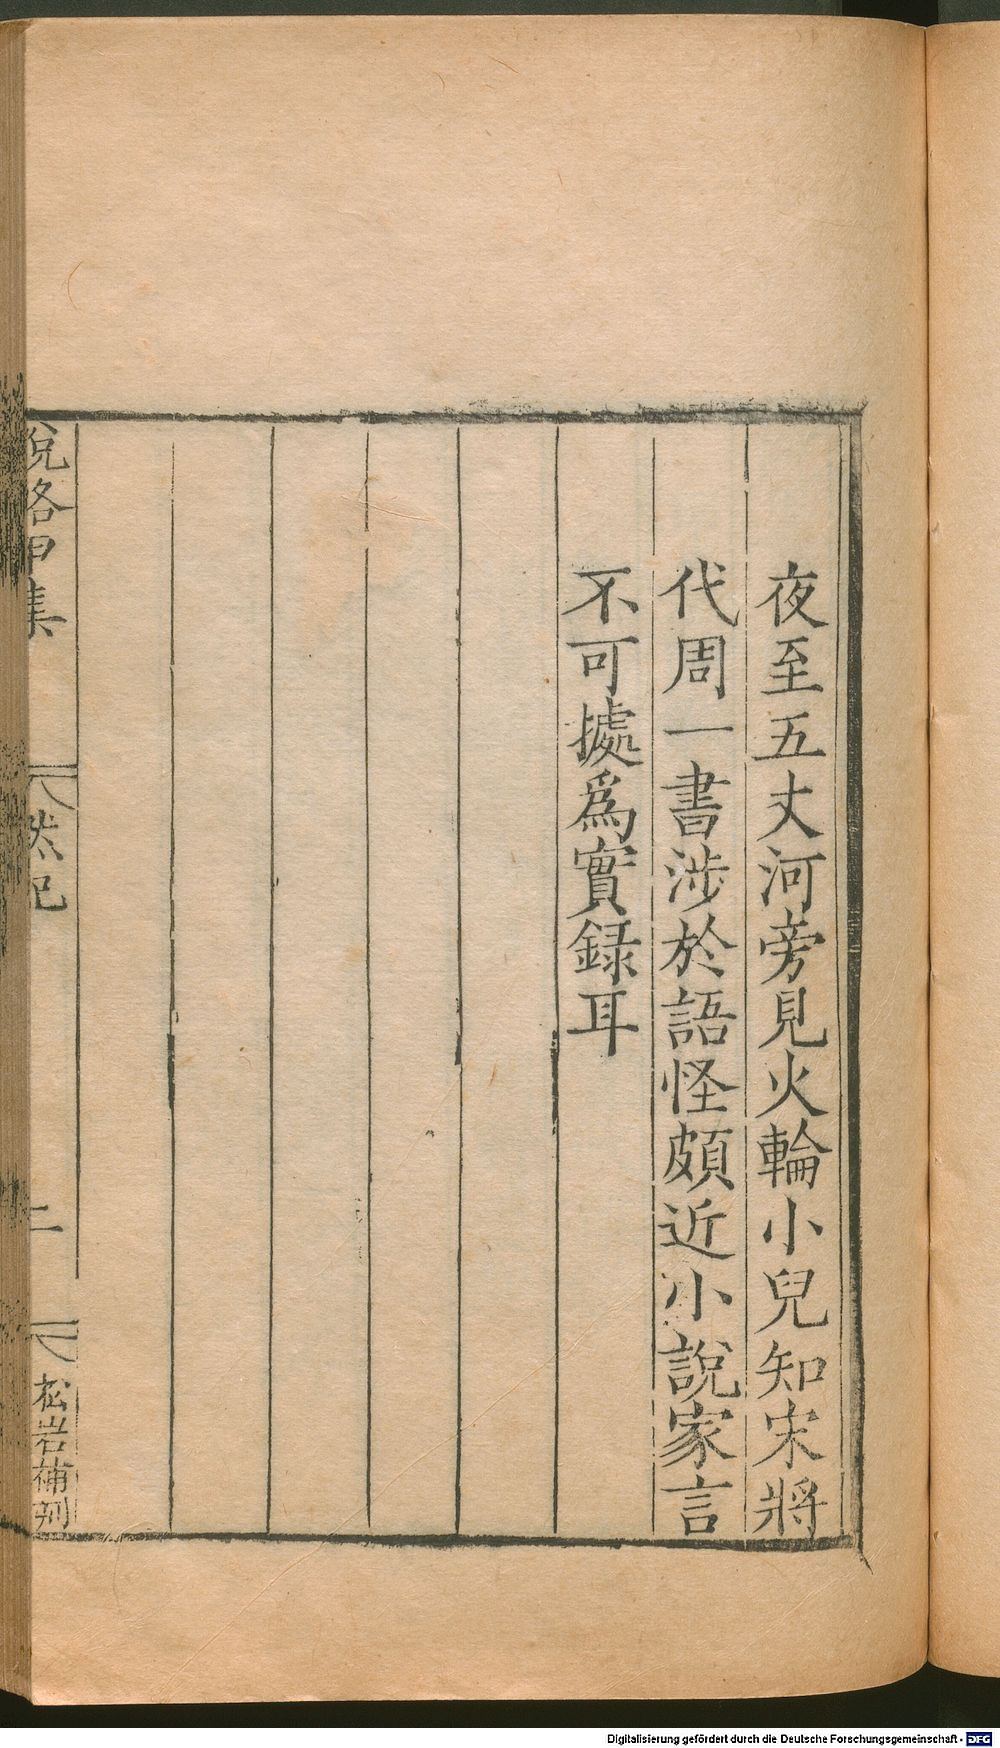 夜至五丈河旁見火輪小兒知宋將
代周一書涉於語怪頗近小說家言
不可據爲實録耳
說鈴甲集
二
松岩補刊
Digitalisierung gefördert durch die Deutsche Forschungsgemeinschaft - DFG